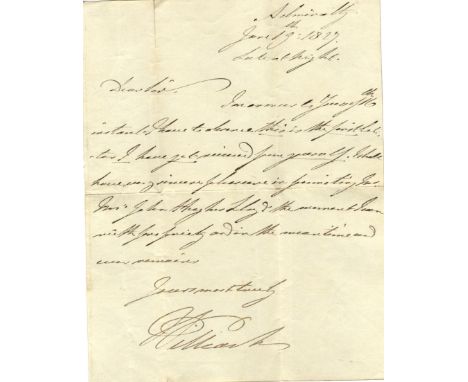 Admiralty
Jan: 19th: 1827.
Late at Night.
Dear Sir.
In answer to Yours of the
instant I have to observe this is the first let-
ter I have yet received from yourself. I shall
have very sincere pleasure in promoting
John Hughes Lloyd the moment I can
with propriety and in the mean time and
ever remain
Yours most truly
William